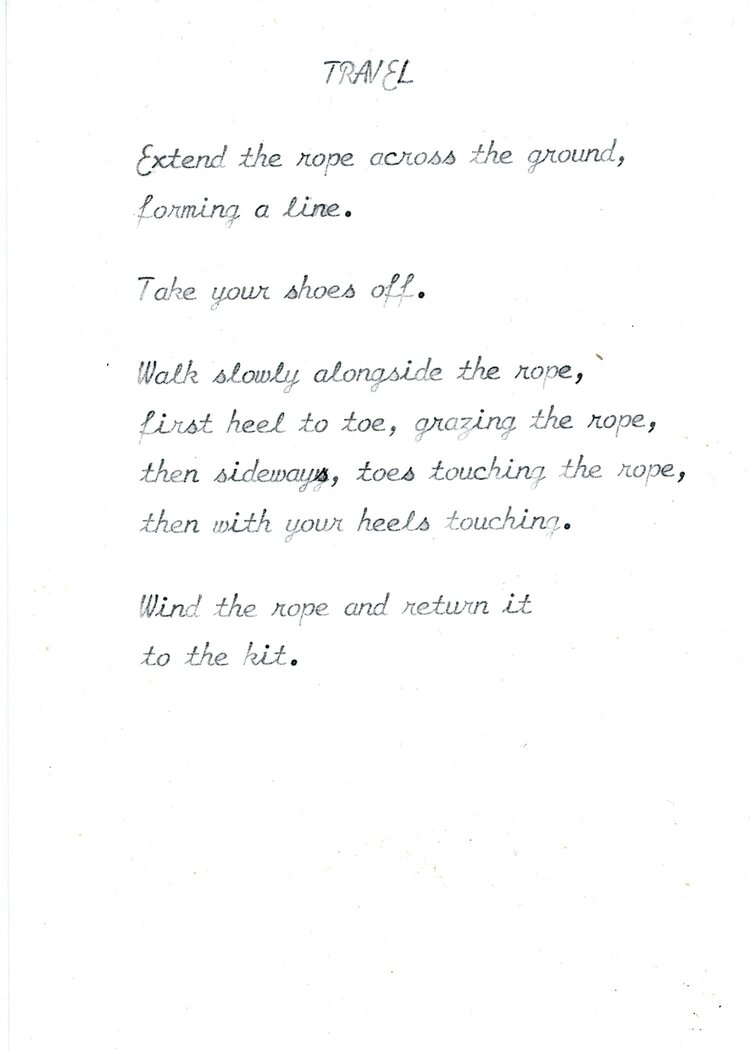 TRAVEL
Extend the rope across the ground,
forming a line.
Take your shoes off.
Walk slowly alongside the rope,
first heel to toe, grazing the rope,
then sideways, toes touching the rope,
then with your heels touching.
Wind the rope and return it
to the kit.